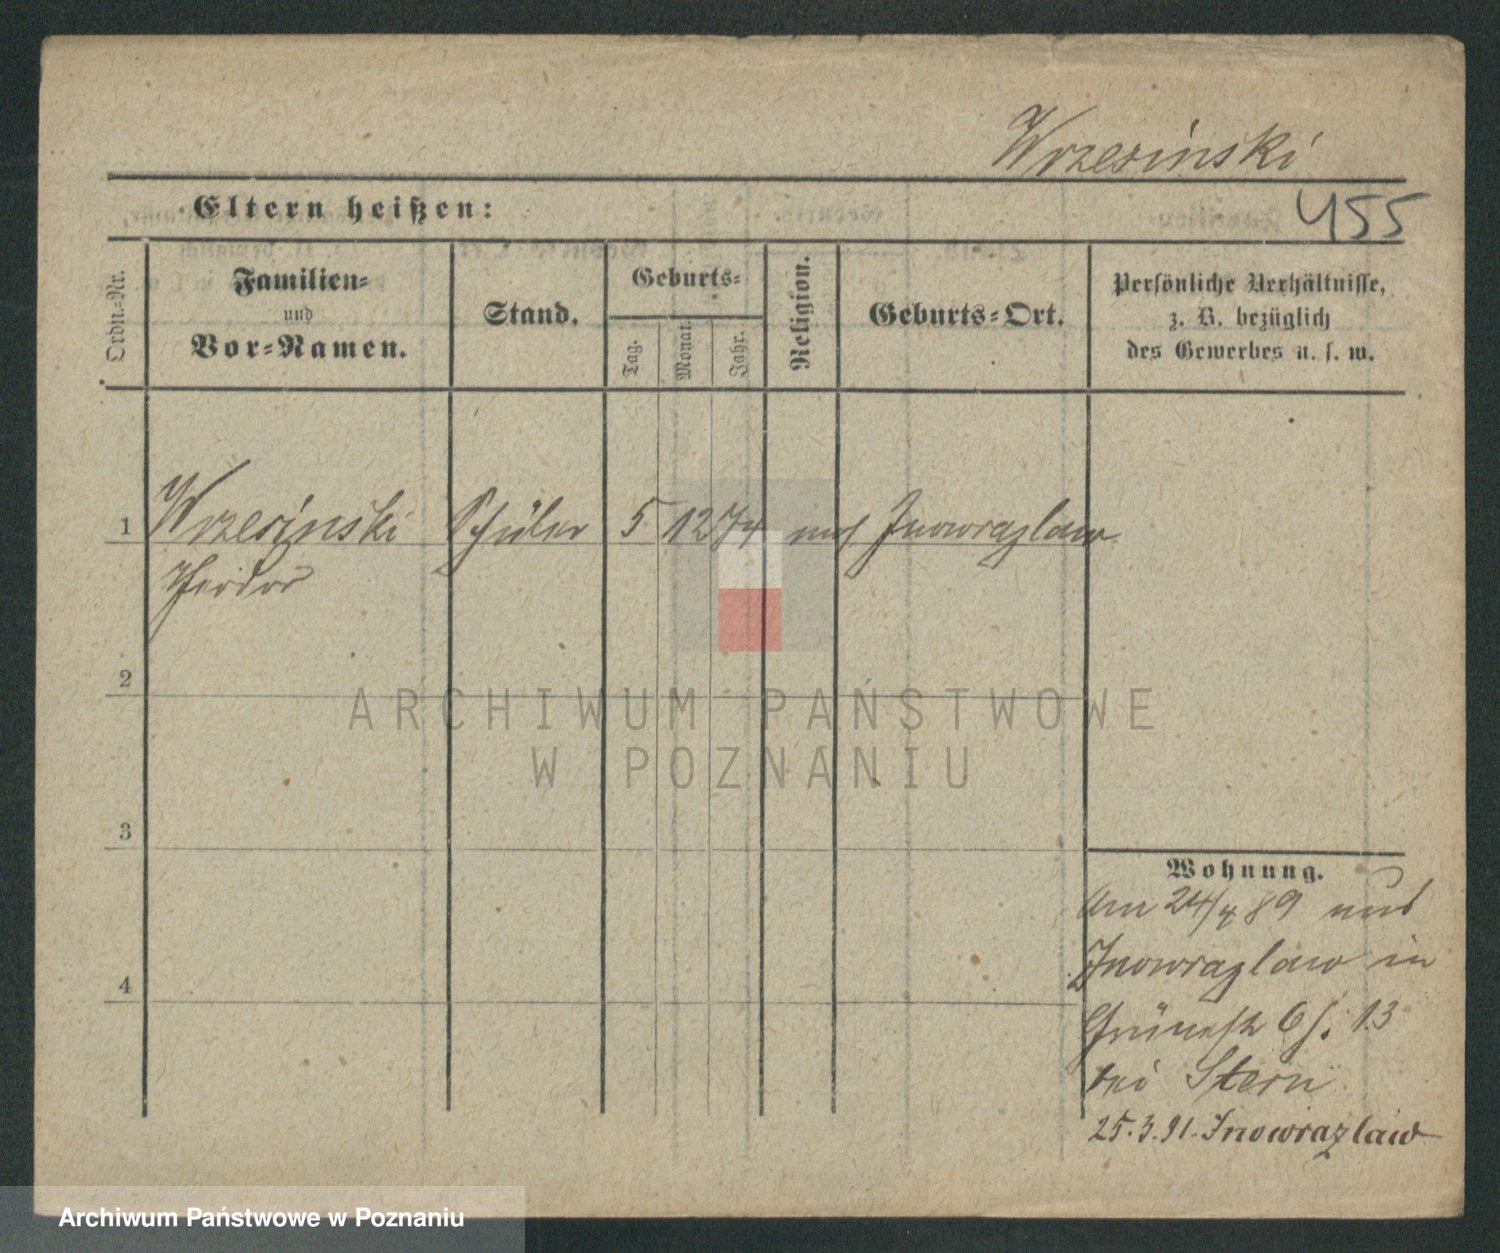 Wrzesinski
Eltern heißen:
455
Ordn.-Nr.
Familien-
und
Vor-Namen.
Stand.
Geburts-
Tag.
Monat.
Jahr.
Religion.
Geburts-Ort.
Persönliche Verhältnisse,
z. B. bezüglich
des Gewerbes u. s. w.
1 Wrzesinski Schüler 5 12 74 mos Inowrazlaw
Theodor
2
3
4
Wohnung.
Am 24/4 89 aus
Inowrazlaw in
Grünestr 6 13
bei Stern
25.3.91. Inowrazlaw
ARCHIWUM PAŃSTWOWE
W POZNANIU
Archiwum Państwowe w Poznaniu